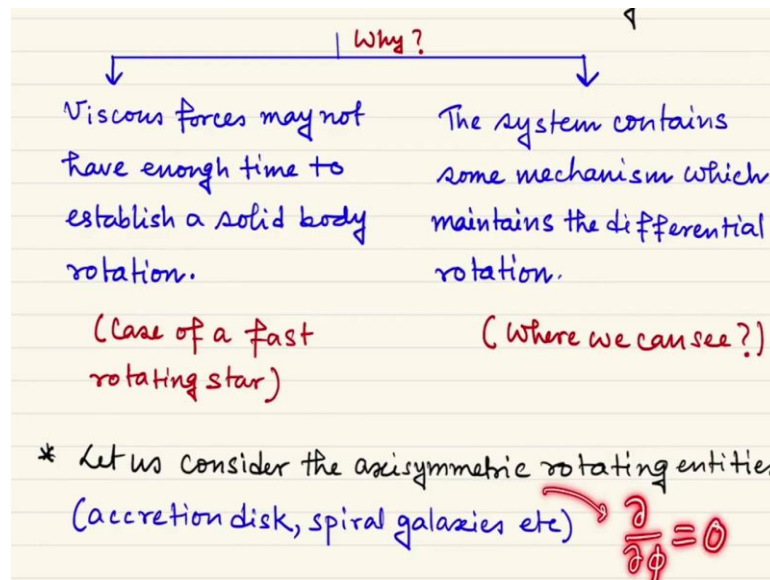 Why?
Viscous forces may not
have enough time to
establish a solid body
rotation.
(Case of a fast
rotating star)
The system contains
some mechanism which
maintains the differential
rotation.
(Where we can see?)
* Let us consider the axisymmetric rotating entities
(accretion disk, spiral galaxies etc)
∂/∂φ = 0